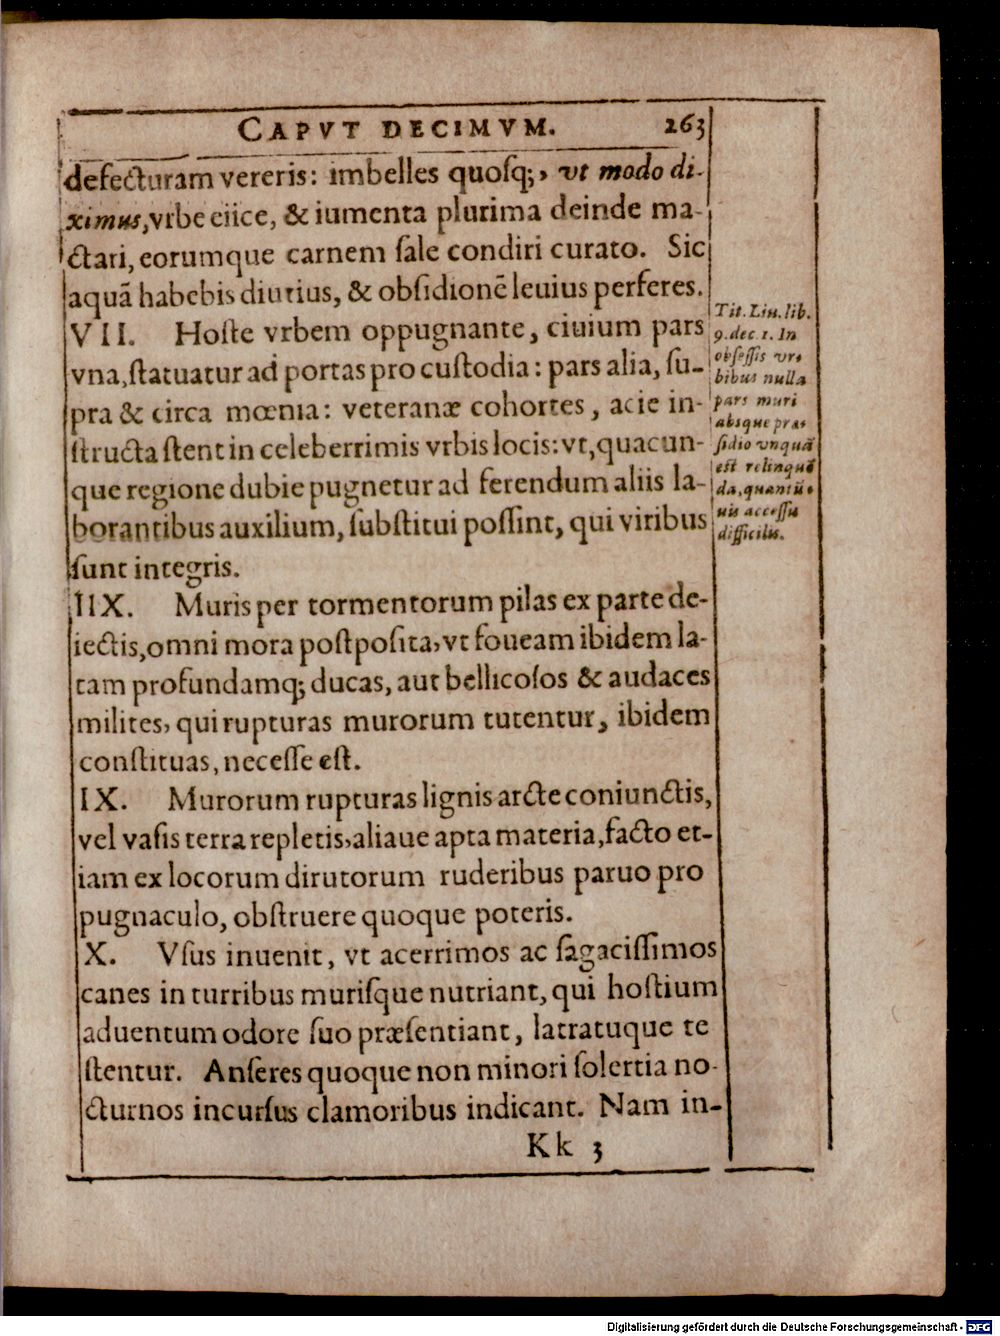 CAPVT DECIMVM. 263
defecturam vereris: imbelles quoſq;, vt modo di-
ximus, vrbe eiice, & iumenta plurima deinde ma-
ctari, eorumque carnem ſale condiri curato. Sic
aquā habebis diutius, & obſidionē leuius perferes.
VII. Hoſte vrbem oppugnante, ciuium pars
vna, ſtatuatur ad portas pro cuſtodia: pars alia, ſu-
pra & circa mœnia: veteranæ cohortes, acie in-
ſtructa ſtent in celeberrimis vrbis locis: vt, quacun-
que regione dubie pugnetur ad ferendum aliis la-
borantibus auxilium, ſubſtitui poſſint, qui viribus
ſunt integris.
Tit. Liu. lib.
9. dec. 1. In
obſeſſis vr-
bibus nulla
pars muri
absque præ-
ſidio vnquā
est relinquē
da, quantū-
uis acceſſu
difficilis.
IIX. Muris per tormentorum pilas ex parte de-
iectis, omni mora poſtpoſita, vt foueam ibidem la-
tam profundamq; ducas, aut bellicoſos & audaces
milites, qui rupturas murorum tutentur, ibidem
conſtituas, neceſſe eſt.
IX. Murorum rupturas lignis arcte coniunctis,
vel vaſis terra repletis, aliaue apta materia, facto et-
iam ex locorum dirutorum ruderibus paruo pro
pugnaculo, obſtruere quoque poteris.
X. Vſus inuenit, vt acerrimos ac ſagaciſſimos
canes in turribus muriſque nutriant, qui hoſtium
aduentum odore ſuo præſentiant, latratuque te
ſtentur. Anſeres quoque non minori ſolertia no-
cturnos incurſus clamoribus indicant. Nam in-
Kk 3
Digitalisierung gefördert durch die Deutsche Forschungsgemeinschaft - DFG